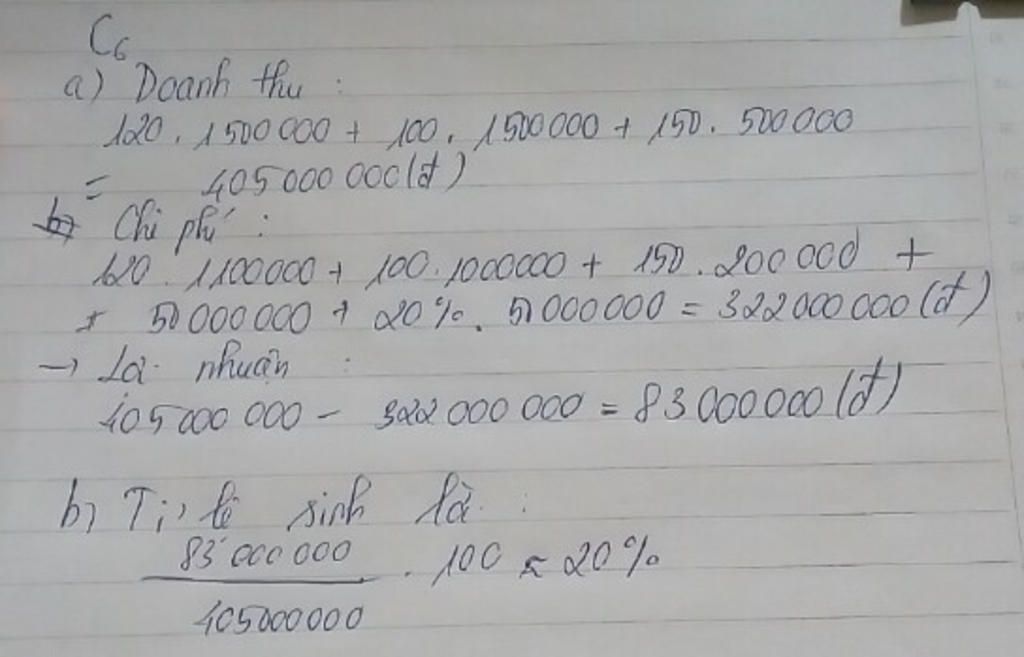 C6
a) Doanh thu :
120 . 1500 000 + 100 . 1500000 + 150 . 500 000
= 405 000 000 (đ)
Chi phí :
120 . 1100000 + 100 . 1000000 + 150 . 200 000 +
+ 50 000 000 + 20% . 50 000 000 = 322 000 000 (đ)
→ Lợi nhuận :
405 000 000 - 322 000 000 = 83 000 000 (đ)
b) Tỉ lệ sinh là :
83 000 000
. 100 ≈ 20%
405000000